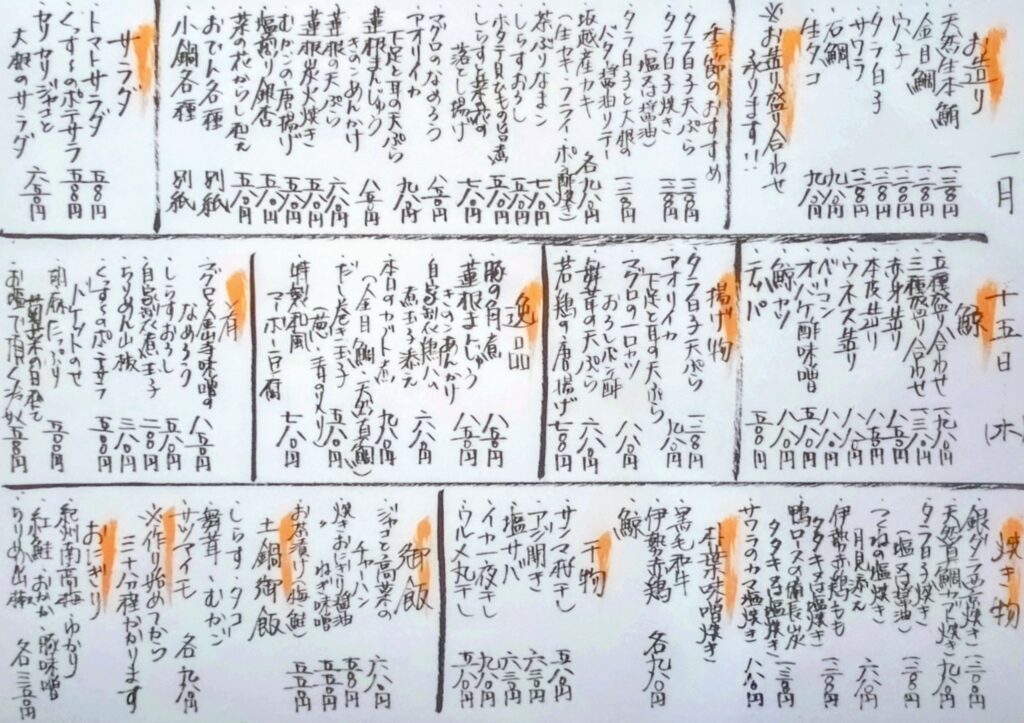 一月
十五日
(木)
お造り
天然生本鮪 一二八〇円
金目鯛 一二八〇円
穴子 一二八〇円
タラ白子 一二八〇円
サワラ 一二八〇円
石鯛 九八〇円
生タコ 九八〇円
※お造り盛り合わせ
承ります!!
季節のおすすめ
タラ白子天ぷら
タラ白子焼き
(塩又は醤油) 一二八〇円
タラ白子と大根の
バター醤油ソテー 一二八〇円
坂越産カキ
(生カキ・フライ・ポン酢焼き) 各九八〇円
茶ぶりなまこ 七八〇円
しらすおろし 五五〇円
ホタテ貝ひもの旨煮 五八〇円
しらすと
落とし揚げ 七八〇円
マグロのなめろう 八五〇円
アオリイカ
下足と耳の天ぷら 九八〇円
蓮根まんじゅう
きのこあんかけ 八五〇円
蓮根の天ぷら 六八〇円
蓮根炭火焼き 五八〇円
むかごの唐揚げ 五八〇円
塩煎り銀杏 五八〇円
菜の花からし和え 五五〇円
おでん各種 別紙
小鍋各種 別紙
サラダ
トマトサラダ 五五〇円
くっすんのポテサラ 五五〇円
セリとジャコと
大根のサラダ 六五〇円
鯨
五種盛り合わせ 一九八〇円
三種盛り合わせ 一三八〇円
赤身造り 八五〇円
本皮造り 八五〇円
ウネス造り 八八〇円
ベーコン
オバケ酢味噌 五八〇円
鯨カツ 八八〇円
テッパ 五五〇円
揚げ物
タラ白子天ぷら 一二八〇円
アオリイカ
下足と耳の天ぷら 九八〇円
マグロの一口カツ
おろしポン酢 八八〇円
舞茸の天ぷら 六八〇円
若鶏の唐揚げ 七八〇円
逸品
豚の角煮 八五〇円
蓮根まんじゅう
きのこあんかけ 八五〇円
自家製鶏ハム
煮玉子添え 六八〇円
本日のカブト煮
(金目鯛・天然真鯛) 九八〇円
だし巻き玉子
(葱・青のり入り) 五八〇円
特製和風
マーボー豆腐 七八〇円
肴
マグロと金山寺味噌の
なめろう 八五〇円
しらすおろし 五五〇円
自家製煮玉子 二八〇円
ちりめん山椒 三八〇円
くっすんのポテサラ
バゲットのせ 五五〇円
胡麻たっぷり
菊菜の白和え 五五〇円
お塩で頂くお奴 五五〇円
焼き物
銀ダラ西京焼き 一二八〇円
天然真鯛カブト焼き 九八〇円
タラ白子焼き
(塩又は醤油) 一二八〇円
つくねの塩焼き
月見添え 六八〇円
伊勢赤鶏もも
タタキ又は塩焼き 一二八〇円
鴨ロースの備長炭
タタキ又は塩焼き 一二八〇円
サワラのカマ塩焼き 八八〇円
朴葉味噌焼き
黒毛和牛
伊勢赤鶏
鯨 各九八〇円
干物
サンマ杉干し 五八〇円
アジ開き 六三〇円
塩サバ 六三〇円
イカ一夜干し 九八〇円
ウルメ丸干し 五八〇円
御飯
ジャコと高菜の
チャーハン 六八〇円
焼きおにぎり醤油 五五〇円
〃 ねぎ味噌 五五〇円
お茶漬け(梅・鮭) 五五〇円
土鍋御飯
しらす・タコ
舞茸・むかご
サツマイモ 各九八〇円
※作り始めてから
三十分程かかります
おにぎり
紀州南高梅・ゆかり
紅鮭・おかか・豚味噌
ちりめん山椒 各三五〇円